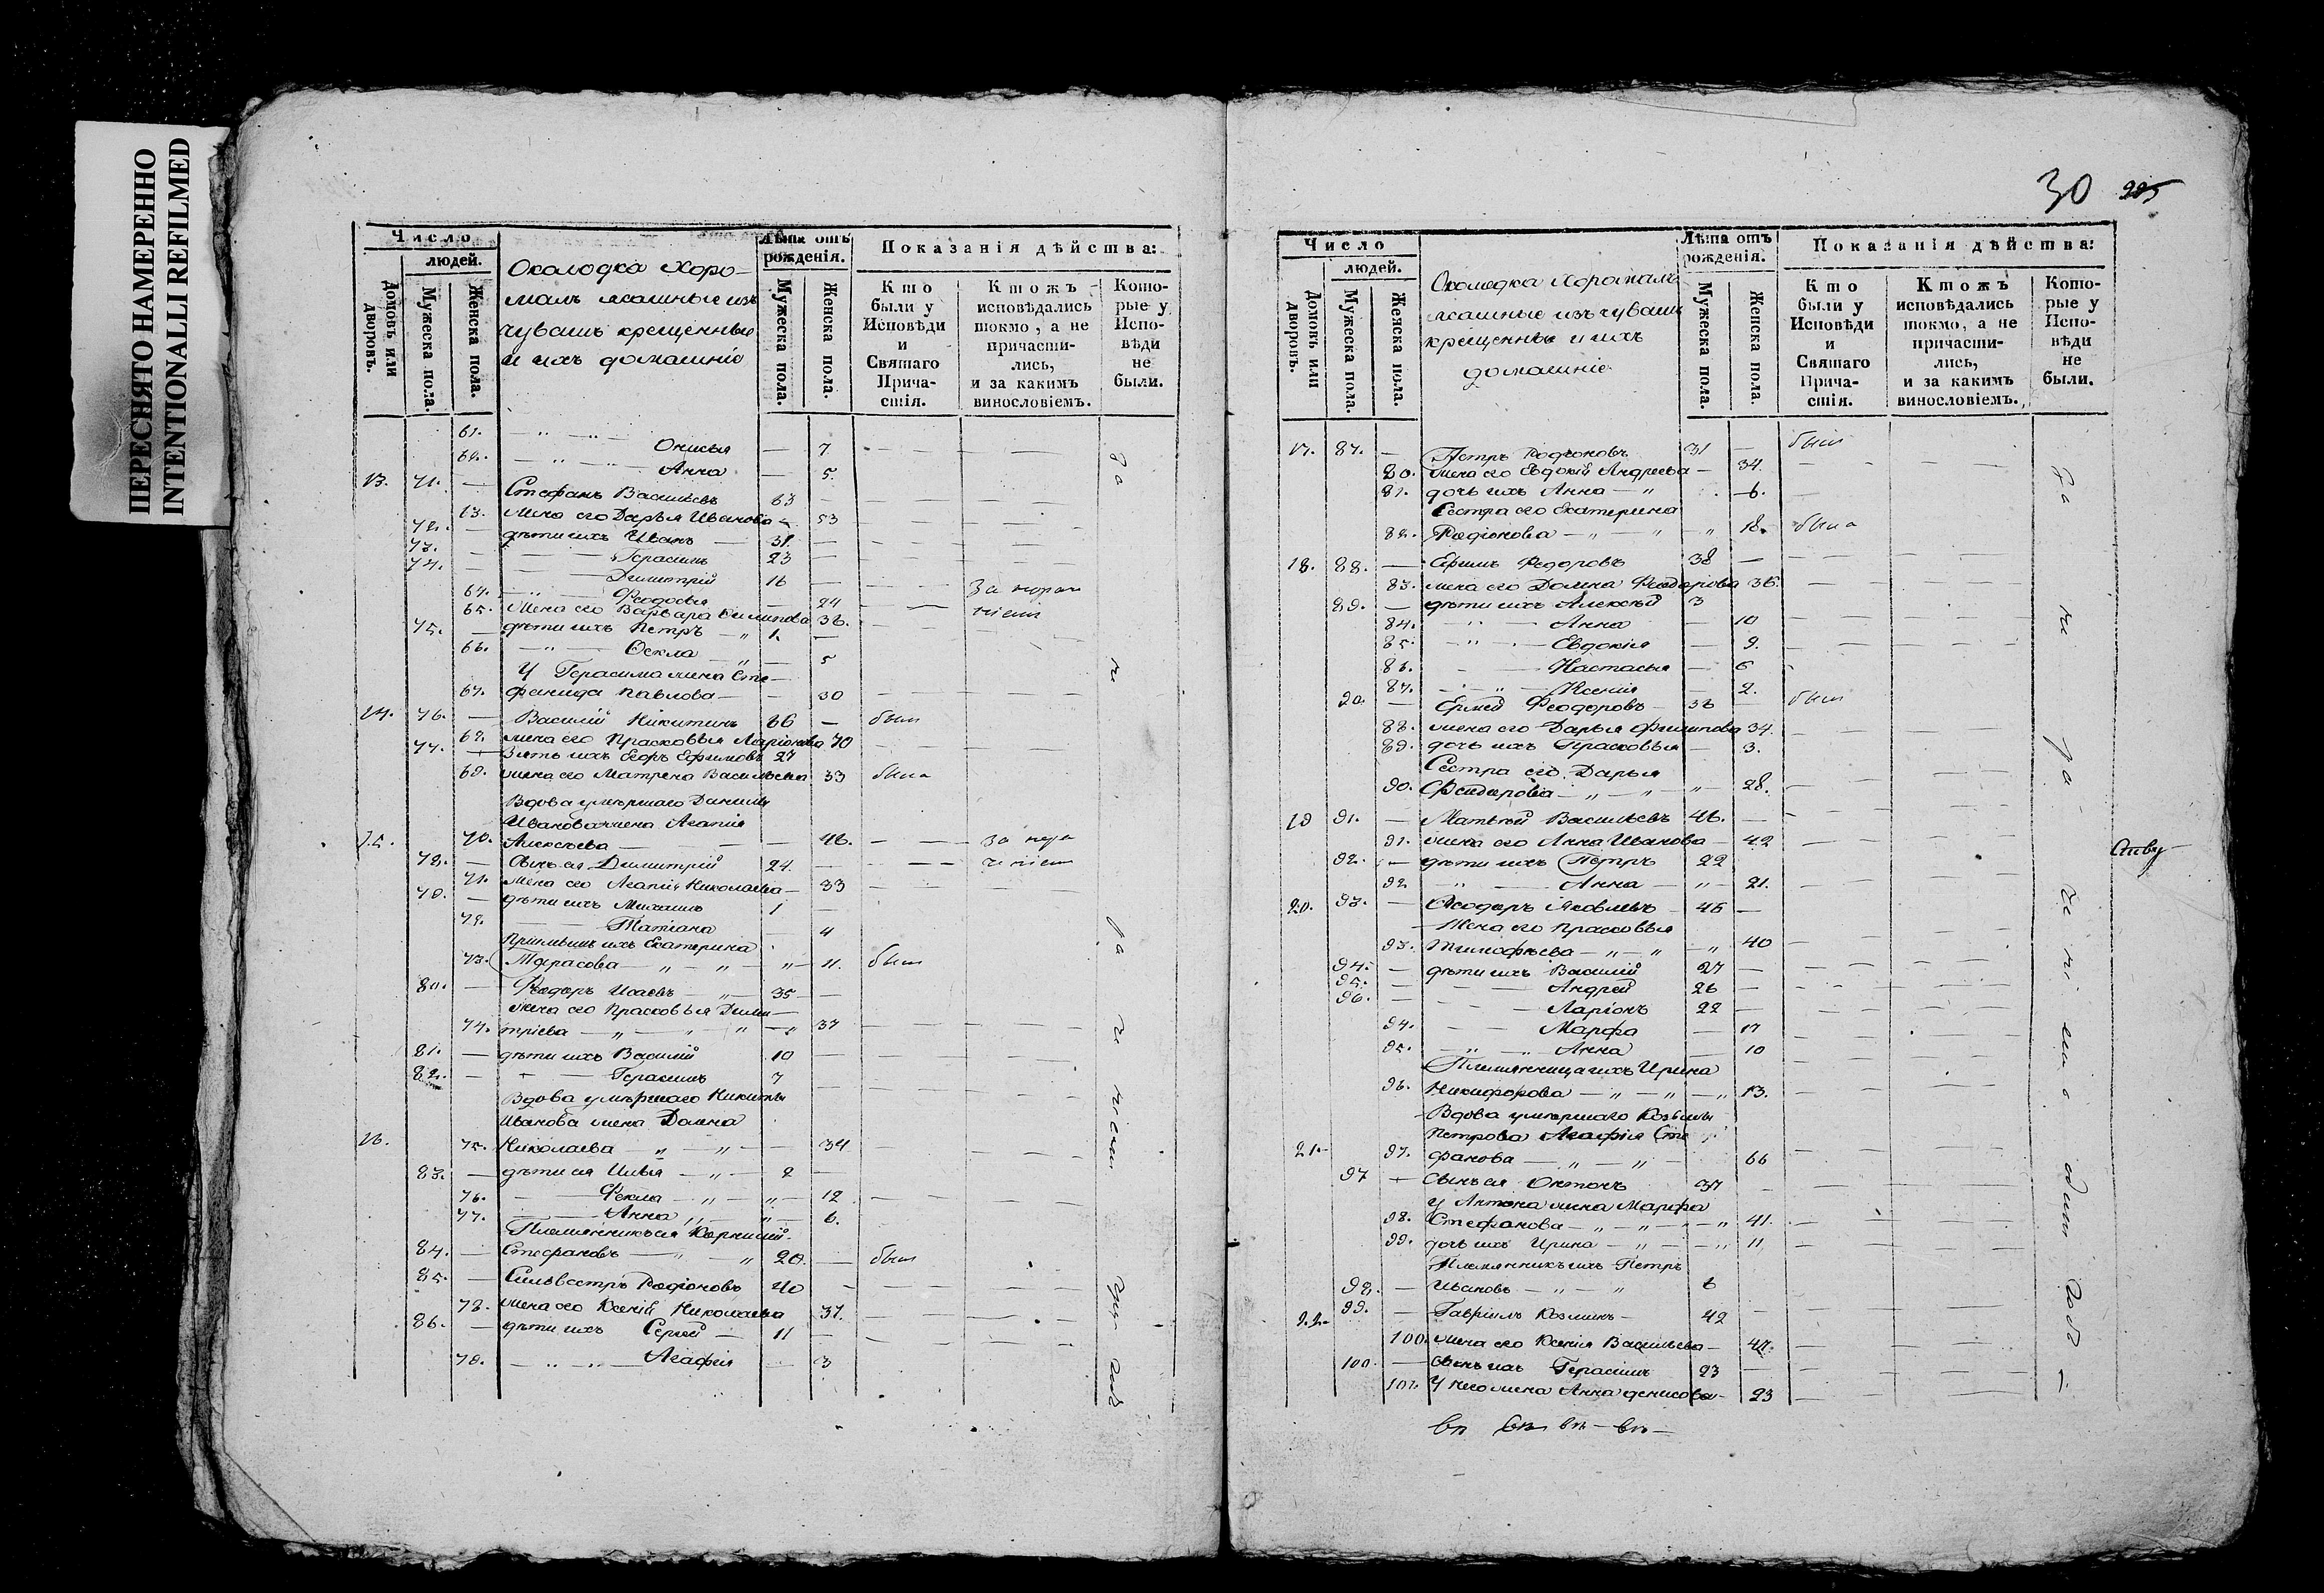 ПЕРЕСНЯТО НАМЕРЕННО
INTENTIONALLI REFILMED
Число
людей.
Домовъ или дворовъ.
Мужеска пола.
Женска пола.
Околодка Хоро-
малъ ясашные изъ
чувашъ крещенные
и ихъ домашніе
Лѣта отъ рожденія.
Мужеска пола.
Женска пола.
Показанія дѣйства:
Кто были у Исповѣди и Святаго Причастія.
Ктожъ исповѣдались токмо, а не причастились, и за какимъ винословіемъ.
Которые у Исповѣди не были.
61. Онисья 7
62. Анна 5.
13. 71. Стефанъ Васильевъ 63
63. жена его Дарья Иванова 53
72. дѣти ихъ Иванъ 31.
73. Герасимъ 23
74. Димитрій 16
64. Феодосья 24
65. Жена его Варвара 36.
75. дѣти ихъ Петръ 1.
66. Фекла 5
У Герасима жена Сте-
67. фанида Павлова 30
14. 76. Василій Никитинъ 66 был
68. жена его Прасковья Ларіонова 70
77. Зять ихъ Егоръ Ефимовъ 27
69. жена его Матрена Васильева 33 была
Вдова умершаго Данилы
Иванова жена Агапія
15. 70. Алексѣева 46.
78. Сынъ ея Димитрій 24.
71. Жена его Агапія Николаева 33
79. дѣти ихъ Михаилъ 1
72. Татіана 4
Екатерина
73. Тарасова 11. был
80. Феодоръ Исаевъ 35
жена его Прасковья Дими-
74. тріева 37
81. дѣти ихъ Василій 10
82. Герасимъ 7
Вдова умершаго Никиты
Иванова жена Домна
16. 75. Николаева 34
83. дѣти ея Илья 2
76. Фекла 12
77. Анна 6.
Племянникъ ея Корнилій
84. Стефановъ 20. был
85. Сильвестръ Родіоновъ 40
78. жена его Ксенія Николаева 37.
86. дѣти ихъ Сергей 11
79. Агафія 3
30 225
Число
людей.
Домовъ или дворовъ.
Мужеска пола.
Женска пола.
Околодка Хорамалъ
ясашные изъ чувашъ
крещенные и ихъ
домашніе
Лѣта отъ рожденія.
Мужеска пола.
Женска пола.
Показанія дѣйства:
Кто были у Исповѣди и Святаго Причастія.
Ктожъ исповѣдались токмо, а не причастились, и за какимъ винословіемъ.
Которые у Исповѣди не были.
17. 87. Петръ Родіоновъ 31 был
80. жена его Евдокія Андреева 34.
81. дочь ихъ Анна 6.
Сестра его Екатерина
82. Родіонова 18. была
18. 88. Ефимъ Федоровъ 38
83. жена его Домна Феодорова 36.
89. дѣти ихъ Алексѣй 3
84. Анна 10
85. Евдокія 9.
86. Настасья 6
87. Ксенія 2.
90. Феодоровъ 36 был
88. жена его Дарья Филипова 34.
89. дочь ихъ Прасковья 3.
Сестра его Дарья
90. Феодорова 28.
19 91. Матвѣй Васильевъ 46.
91. жена его Анна Иванова 42
92. дѣти ихъ Петръ 22
92 Анна 21.
20. 93. Феодоръ Яковлевъ 45
Жена его Прасковья
93. Тимофѣева 40
94. дѣти ихъ Василій 27
95. Андрей 26
96. Ларіонъ 22
94. Марфа 17
95. Анна 10
Племянница ихъ Ирина
96. Никифорова 13.
Вдова умершаго Козьмы
Петрова Агафія Сте-
21. 97. фанова 66
97 Сынъ ея Антонъ 37
У Антона жена Марфа
98. Стефанова 41.
99. дочь ихъ Ирина 11
Племянникъ ихъ Петръ
98. Ивановъ 6
22. 99. Гавріилъ Козминъ 42
100. жена его Ксенія Васильева 47.
100. сынъ ихъ Герасимъ 23
101. У него жена Анна Денисова 23